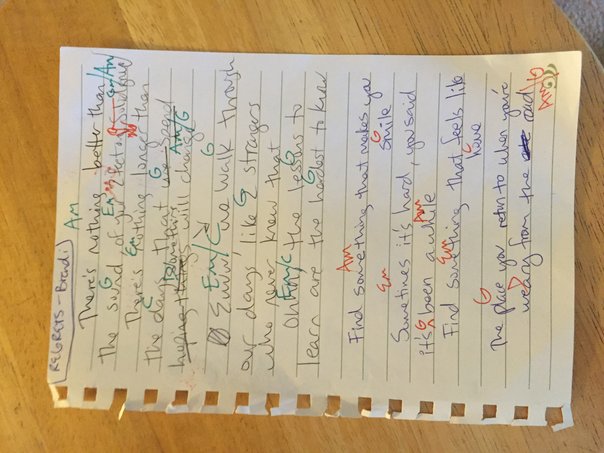 REGRETS - Brandi
Am
There's nothing better than
G Em G Em/Am
the sound of your
Em
There's nothing longer than
C G
the days that we
Am/G
hoping things will change
G
we walk through
Em/C
our days like strangers
G
who never knew that
Em/C G
Oh the lessons to
G
learn are the hardest to know
Am
Find something that makes you
G
smile
Em
Sometimes it's hard, you said
G Am
it's been a while
Em
Find something that feels like
C
home
G
The place you return to when you're
D
weary from the road